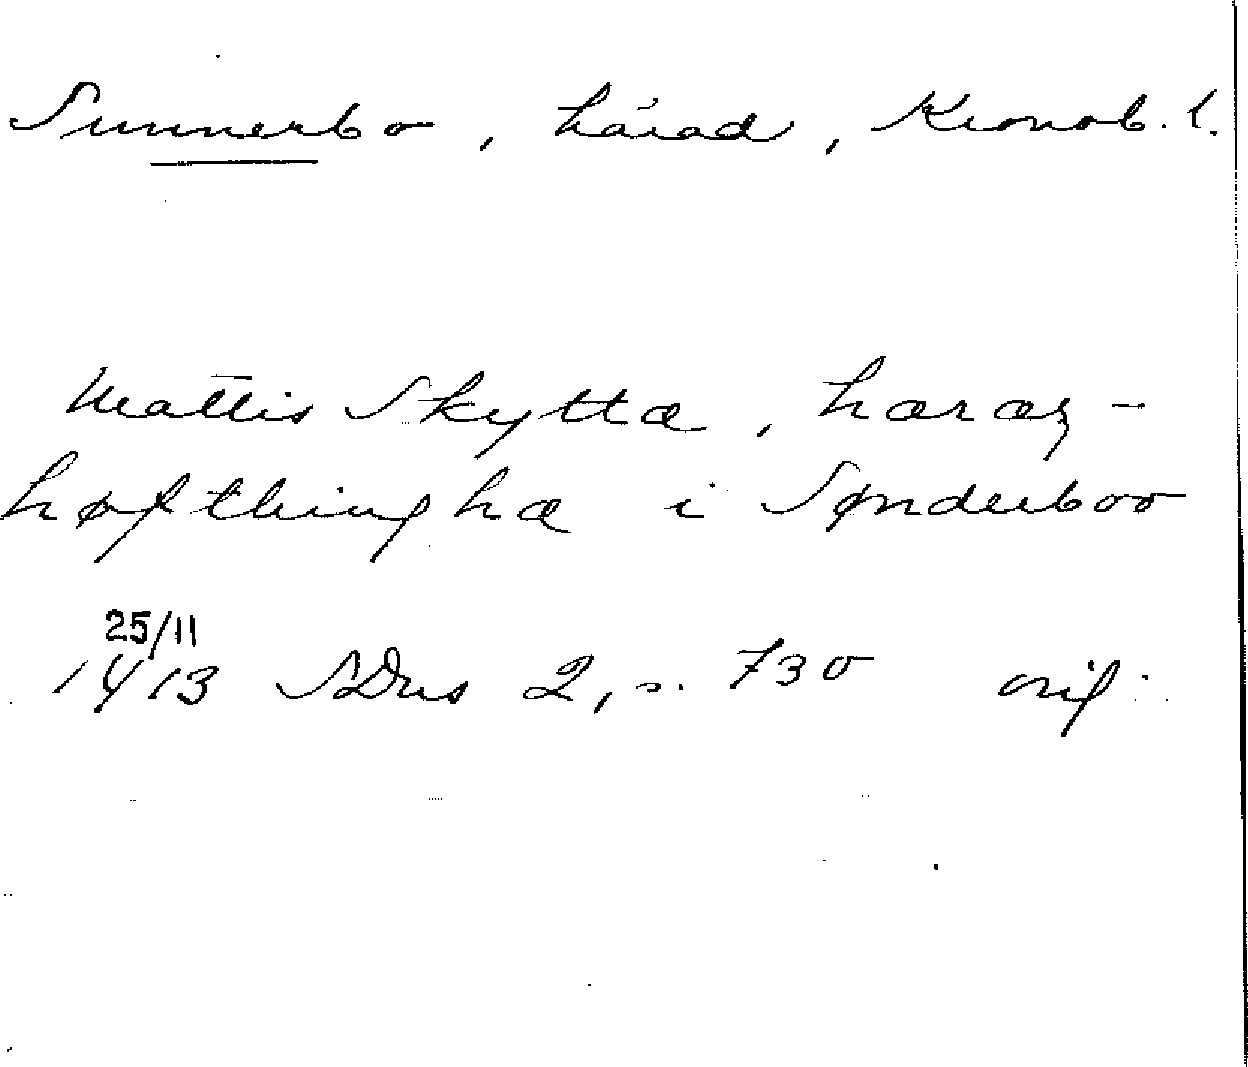 Sunnerbo, härad, Kronob. l.
Mattis Skyttæ, hæræz-
høfthinghæ i Sønderboo
25/11
1413 SDns 2, s. 730 orig.